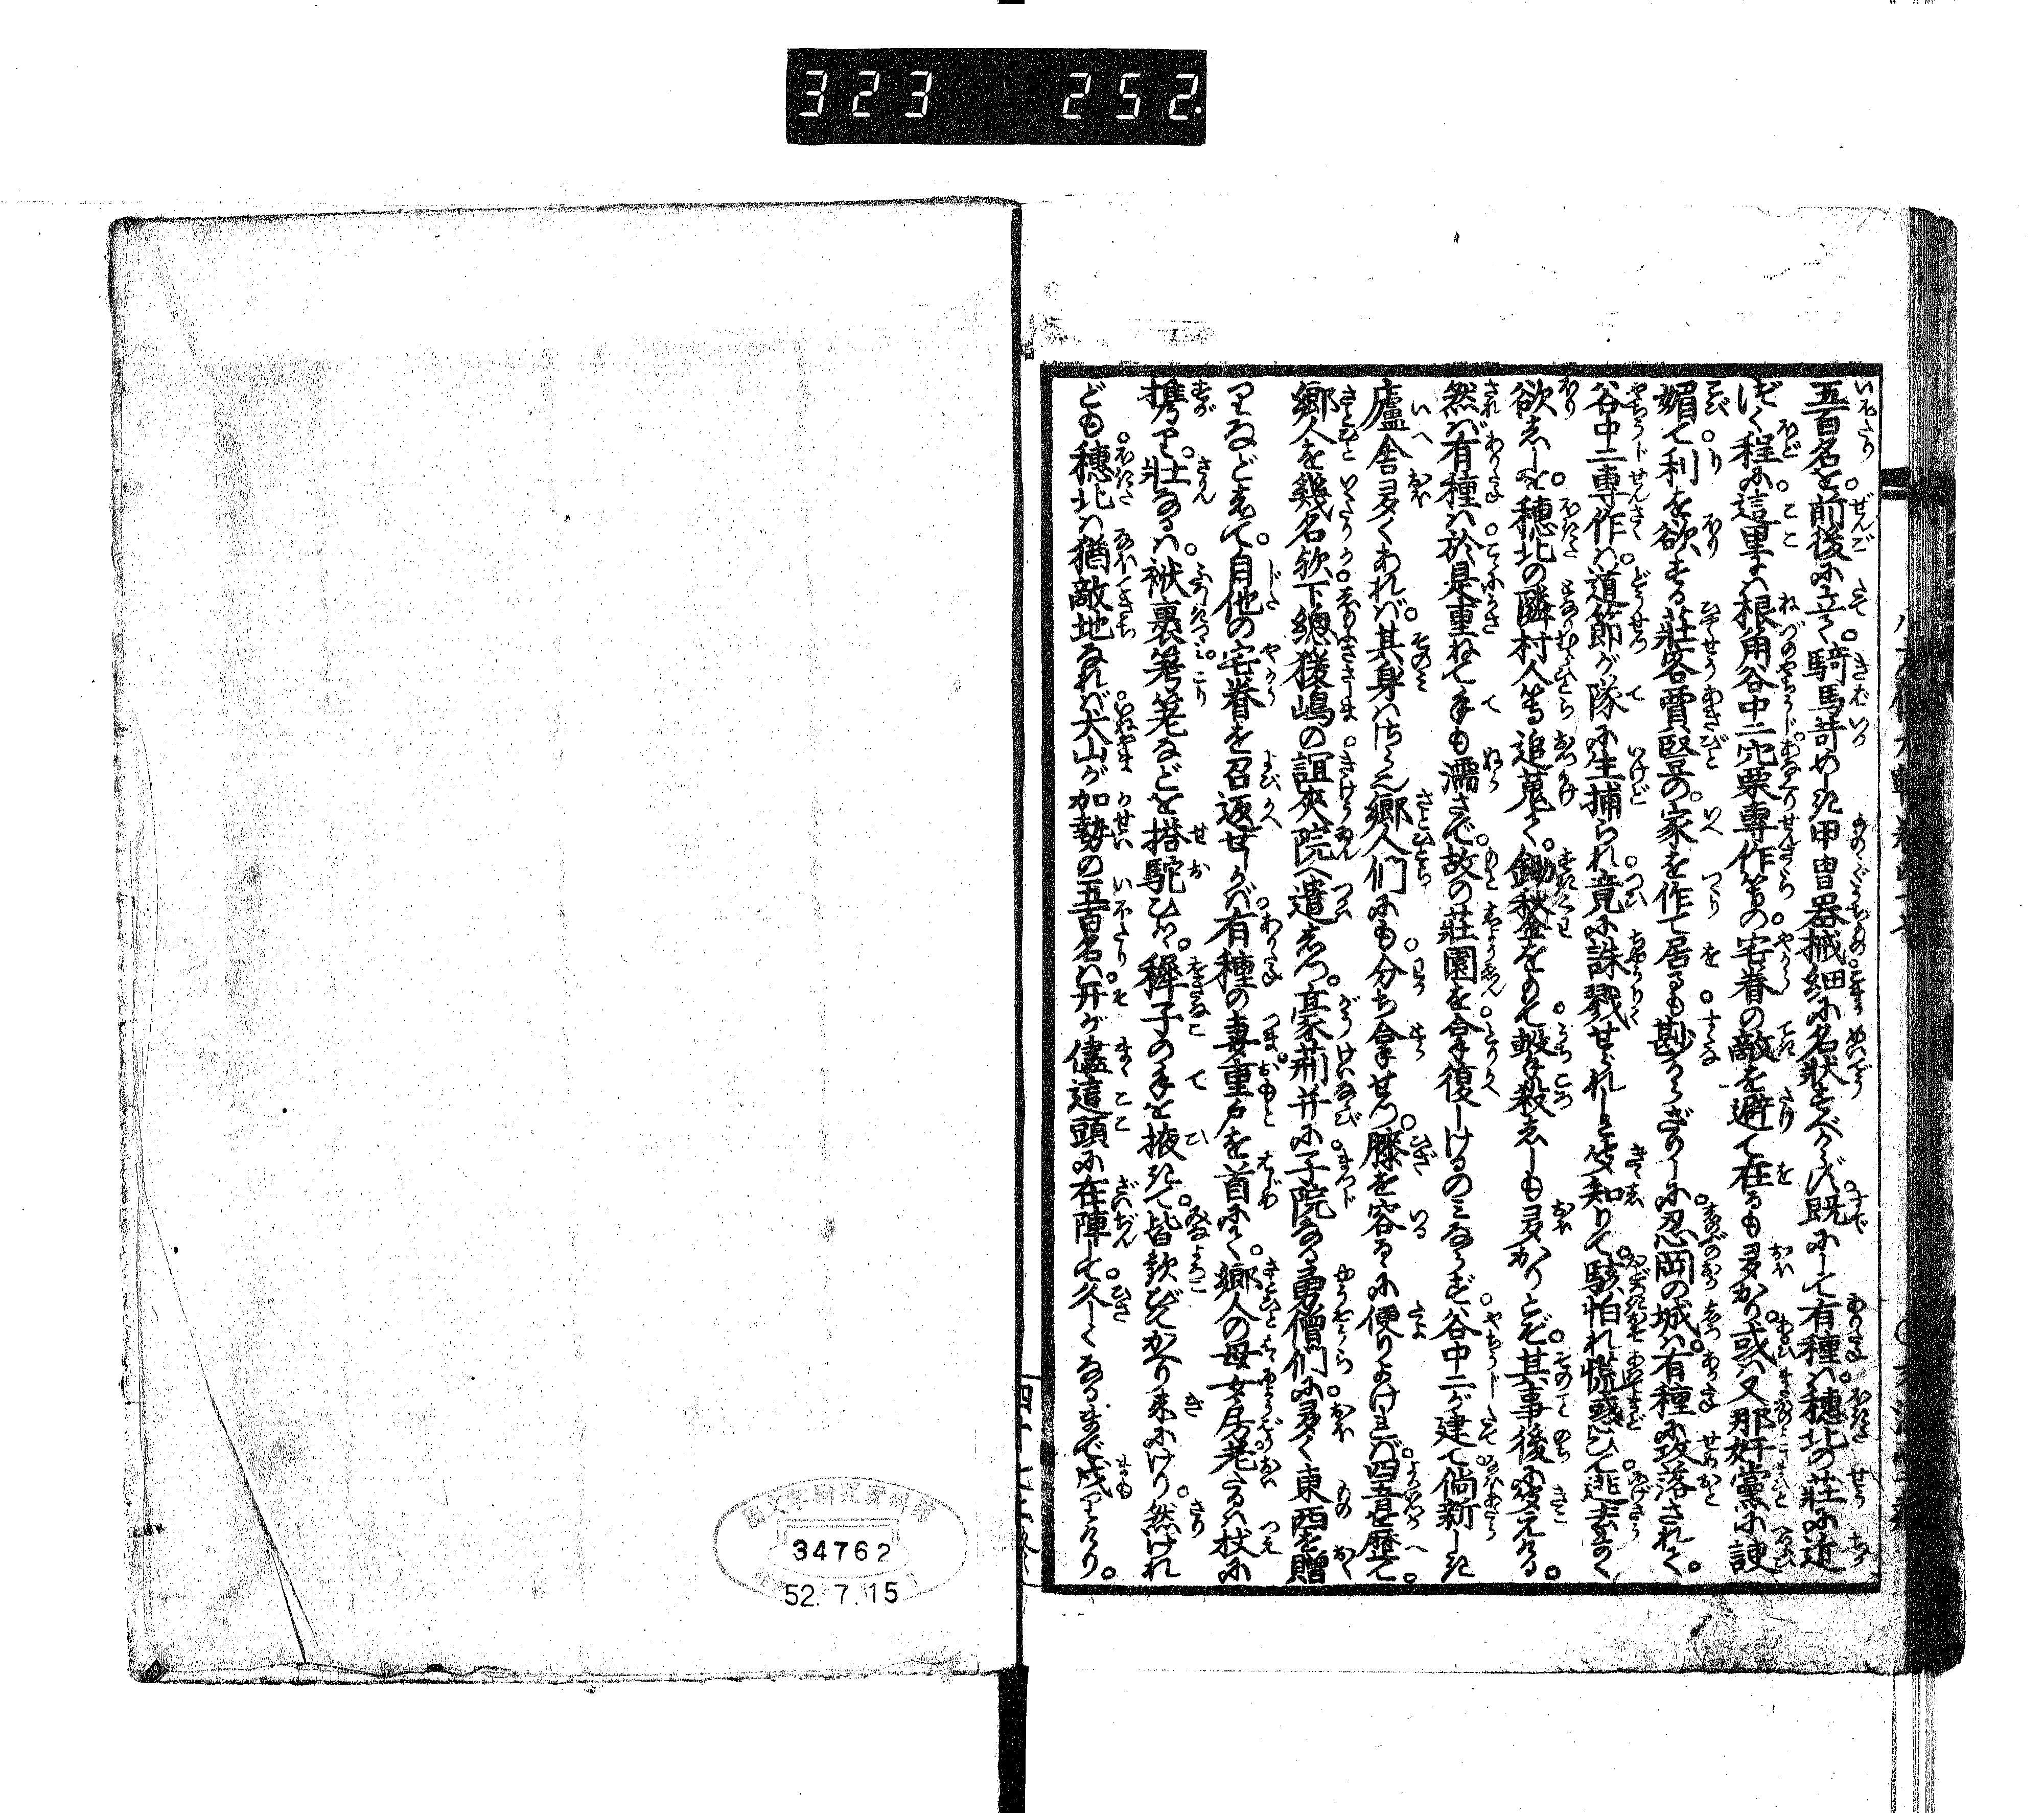 323 252
五百名を前後に立て。騎馬苛めしき甲冑器械細に名状すべからず。既にして有種ハ。穂北の荘に近
づく程に。這里よハ根角谷中二穴栗専作等の宅眷の敵を避て在るも多かり。或ハ又那奸黨に諛
媚て利を欲する荘客賈豎の。家を作て居るも尠からざりしに。忍岡の城ハ。有種に攻落されて。
谷中二専作ハ。道節が隊に生捕られ。竟に誅戮せられしを聞知りて。駭怕れ慌惑ひて。逃去るゝ
欲せしを。穂北の隣村人等追蒐て。鋤秋金をもて毆殺せしも多かりとぞ。其事後に聞えける。
然バ有種ハ。於是重ねて手も濡さで。故の荘園を拿復しけるのミならず。谷中二が建て。尚新しき
廬舎多くあれバ。其身ハさらん郷人们にも。分ち拿せつ。膝を容るゝに便りよけれバ。四五日を歴て。
郷人を幾名欤。下總猨嶋の誼夾院へ遣しつ。豪荊并に。子院なる勇僧們に。多く東西を贈
りなどして。自他の宅眷を召返せしかバ。有種の妻重戸を首にて。郷人の母女房。老たるハ杖に
携り。壮なるハ。袱裹。筹笔などを搭駝ひ。穉子の手を掖きて。皆歓びてかへり来にけり。然けれ
ども。穂北ハ猶敵地なれバ。犬山が加勢の五百名ハ。开が儘這頭に在陣して。久しくなるまで戍りけり。
34762
52.7.15